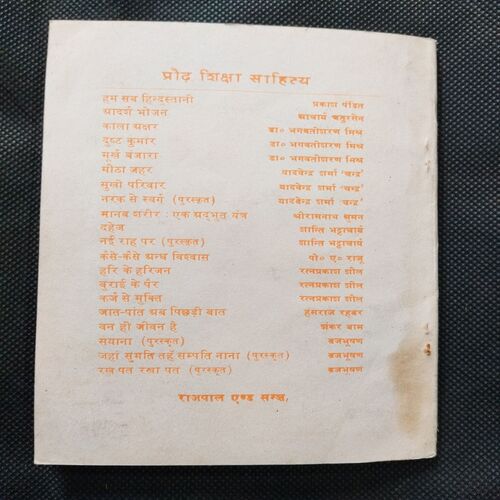 प्रौढ़ शिक्षा साहित्य
हम सब हिन्दुस्तानी प्रकाश पंडित
आदर्श भोजन आचार्य चतुरसेन
काला अक्षर डा० भगवतीशरण मिश्र
दुष्ट कुमार डा० भगवतीशरण मिश्र
मूर्ख बंजारा डा० भगवतीशरण मिश्र
मीठा जहर यादवेन्द्र शर्मा 'चन्द्र'
सुखी परिवार यादवेन्द्र शर्मा 'चन्द्र'
नरक से स्वर्ग (पुरस्कृत) यादवेन्द्र शर्मा 'चन्द्र'
मानव शरीर : एक अद्भुत यंत्र श्रीरामनाथ सुमन
दहेज शान्ति भट्टाचार्य
नई राह पर (पुरस्कृत) शान्ति भट्टाचार्य
कैसे-कैसे अन्ध विश्वास पी० ए० राजू
हरि के हरिजन रत्नप्रकाश शील
बुराई के पैर रत्नप्रकाश शील
कर्ज से मुक्ति रत्नप्रकाश शील
जात-पांत अब पिछड़ी बात हंसराज रहबर
वन ही जीवन है शंकर बाम
सयाना (पुरस्कृत) ब्रजभूषण
जहां सुमति तहँ सम्पति नाना (पुरस्कृत) ब्रजभूषण
रख पत रखा पत (पुरस्कृत) ब्रजभूषण
राजपाल एण्ड सन्ज़,